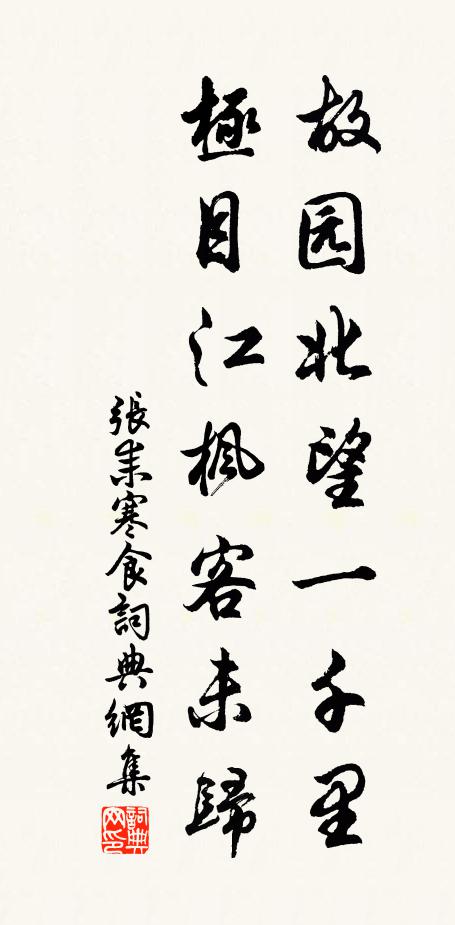 故园北望一千里
極目江枫客未歸
張耒寒食詞典網集
詞典网印